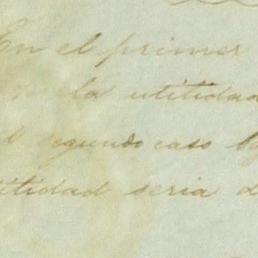 En el primer
la utilidad
segundo caso
utilidad seria d